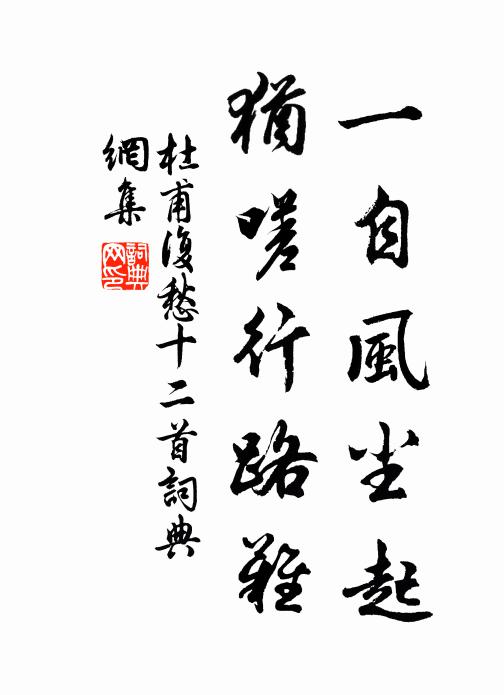 一自風尘起
猶嗟行路難
杜甫復愁十二首詞典
網集
詞典
网印